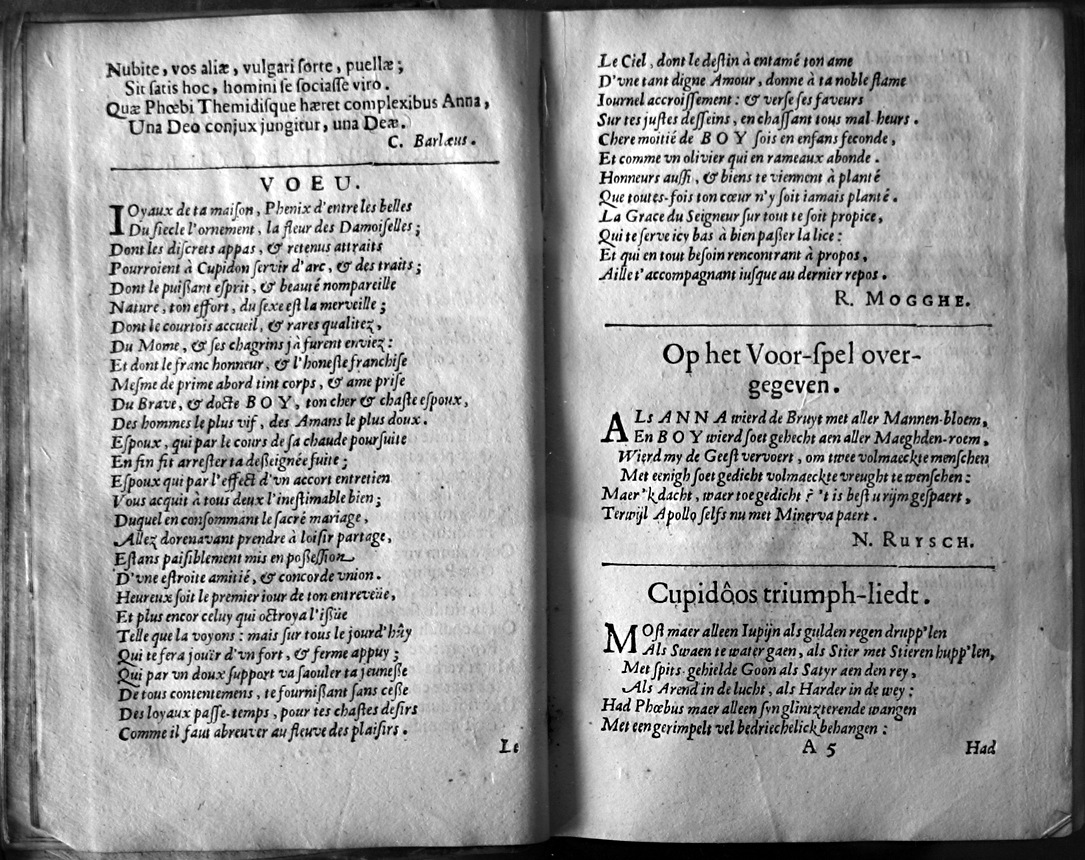 Nubite, vos aliæ, vulgari ſorte, puellæ;
Sit ſatis hoc, homini ſe ſociaſſe viro.
Quæ Phœbi Themidiſque hæret complexibus Anna,
Una Deo conjux jungitur, una Deæ.
C. Barlæus.
VOEU.
IOyaux de ta maiſon, Phenix d'entre les belles
Du ſiecle l'ornement, la fleur des Damoiſelles;
Dont les diſcrets appas, & retenus attraits
Pourroient à Cupidon ſervir d'arc, & des traits;
Dont le puiſſant eſprit, & beauté nompareille
Nature, ton effort, du ſexe eſt la merveille;
Dont le courtois accueil, & rares qualitez,
Du Mome, & ſes chagrins jà furent enviez:
Et dont le franc honneur, & l'honeſte franchiſe
Meſme de prime abord tint corps, & ame priſe
Du Brave, & docte BOY, ton cher & chaſte eſpoux,
Des hommes le plus vif, des Amans le plus doux.
Eſpoux, qui par le cours de ſa chaude pourſuite
En fin fit arreſter ta deßeignée fuite;
Eſpoux qui par l'effect d'vn accort entretien
Vous acquit à tous deux l'ineſtimable bien;
Duquel en conſommant le ſacré mariage,
Allez dorenavant prendre à loiſir partage,
Eſtans paiſiblement mis en poßeſſion
D'vne eſtroite amitié, & concorde vnion.
Heureux ſoit le premier iour de ton entreveüe,
Et plus encor celuy qui octroya l'ißüe
Telle que la voyons: mais ſur tous le jourd'hüy
Qui te fera jouïr d'vn fort, & ferme appuy;
Qui par vn doux ſupport va ſaouler ta jeuneße
De tous contentemens, te fourniſſant ſans ceße
Des loyaux paſſe-temps, pour tes chaſtes deſirs
Comme il faut abreuver au fleuve des plaiſirs.
Le
Le Ciel, dont le deſtin à entamé ton ame
D'vne tant digne Amour, donne à ta noble flame
Iournel accroiſſement: & verſe ſes faveurs
Sur tes juſtes deſſeins, en chaſſant tous mal-heurs.
Chere moitié de BOY ſois en enfans feconde,
Et comme vn olivier qui en rameaux abonde.
Honneurs auſſi, & biens te viennent à planté
Que toutes-fois ton cœur n'y ſoit iamais planté.
La Grace du Seigneur ſur tout te ſoit propice,
Qui te ſerve icy bas à bien paßer la lice:
Et qui en tout beſoin rencontrant à propos,
Aille t'accompagnant iuſque au dernier repos.
R. MOGGHE.
Op het Voor-ſpel over-
gegeven.
ALs ANNA wierd de Bruyt met aller Mannen-bloem,
En BOY wierd ſoet gehecht aen aller Maeghden-roem,
Wierd my de Geeſt vervoert, om twee volmaeckte menſchen
Met eenigh ſoet gedicht volmaeckte vreught te wenſchen:
Maer 'k dacht, waer toe gedicht? 't is beſt u rijm geſpaert,
Terwijl Apollo ſelfs nu met Minerva paert.
N. RUYSCH.
Cupidôos triumph-liedt.
MOſt maer alleen Iupijn als gulden regen drupp'len
Als Swaen te water gaen, als Stier met Stieren hupp'len,
Met ſpits-gehielde Goon als Satyr aen den rey,
Als Arend in de lucht, als Harder in de wey;
Had Phœbus maer alleen ſyn glintzterende wangen
Met een gerimpelt vel bedriechelick behangen:
A 5 Had